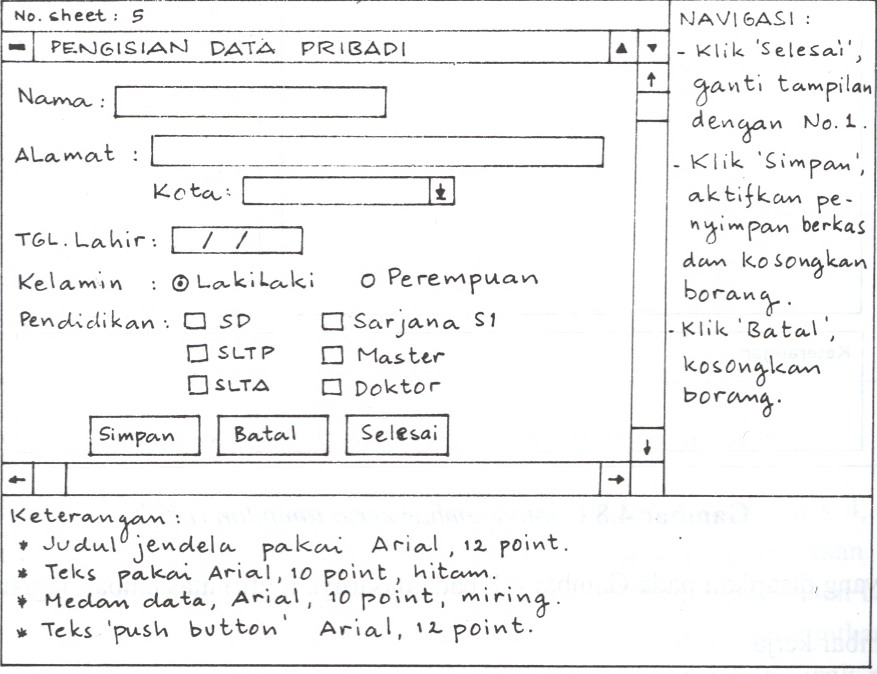 No. sheet : 5
PENGISIAN DATA PRIBADI
Nama :
ALamat :
Kota :
TGL. Lahir : / /
Kelamin : Lakilaki Perempuan
Pendidikan : SD Sarjana S1
SLTP Master
SLTA Doktor
Simpan Batal Selesai
NAVIGASI :
- Klik 'Selesai',
ganti tampilan
dengan No. 1.
- Klik 'Simpan',
aktifkan pe-
nyimpan berkas
dan kosongkan
borang.
- Klik 'Batal',
kosongkan
borang.
Keterangan :
* Judul jendela pakai Arial, 12 point.
* Teks pakai Arial, 10 point, hitam.
* Medan data, Arial, 10 point, miring.
* Teks 'push button' Arial, 12 point.